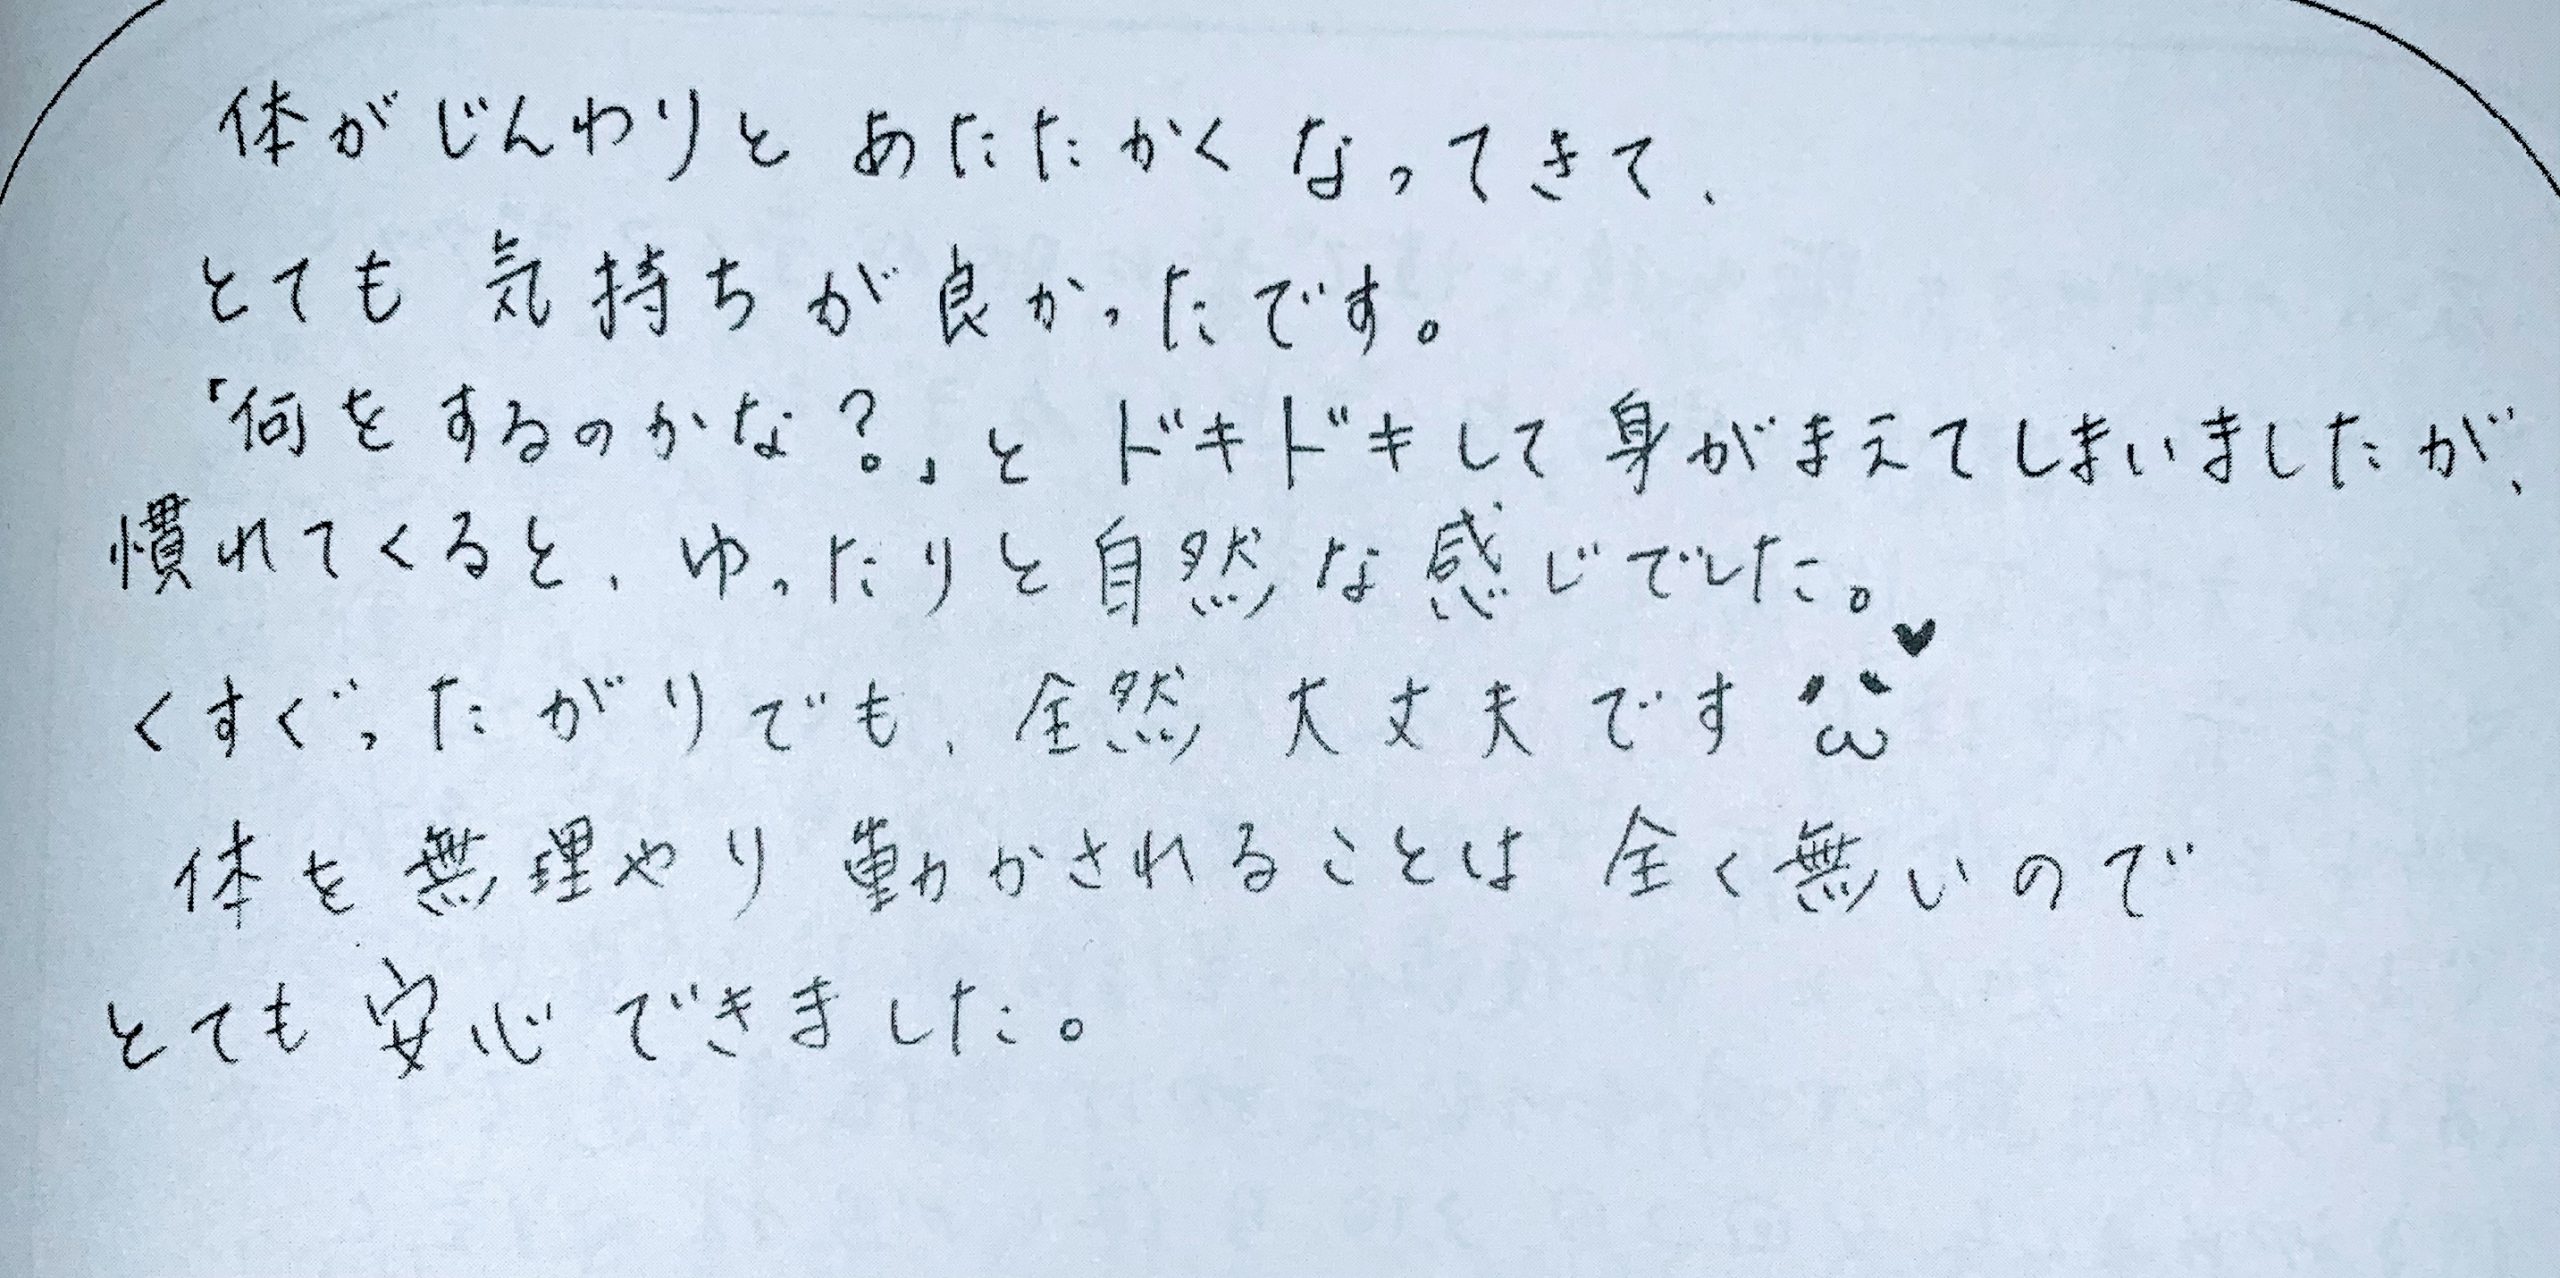 体がじんわりと あたたかく なってきて、
とても 気持ちが良かったです。
「何をするのかな？」と ドキドキして 身がまえてしまいましたが、
慣れてくると、ゆったりと自然な感じでした。
くすぐったがりでも、全然 大丈夫です ♥
体を無理やり 動かされることは 全く無いので
とても 安心できました。